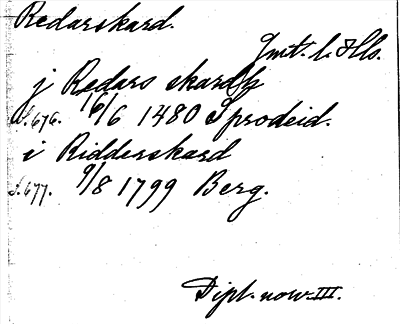 Redarskard.
Gmt. l. Hls.
j Redars skardh
S. 676. 16/6 1480 Sprodeid.
i Ridderskard
S. 677. 9/8 1799 Berg.
Dipl. now. III.